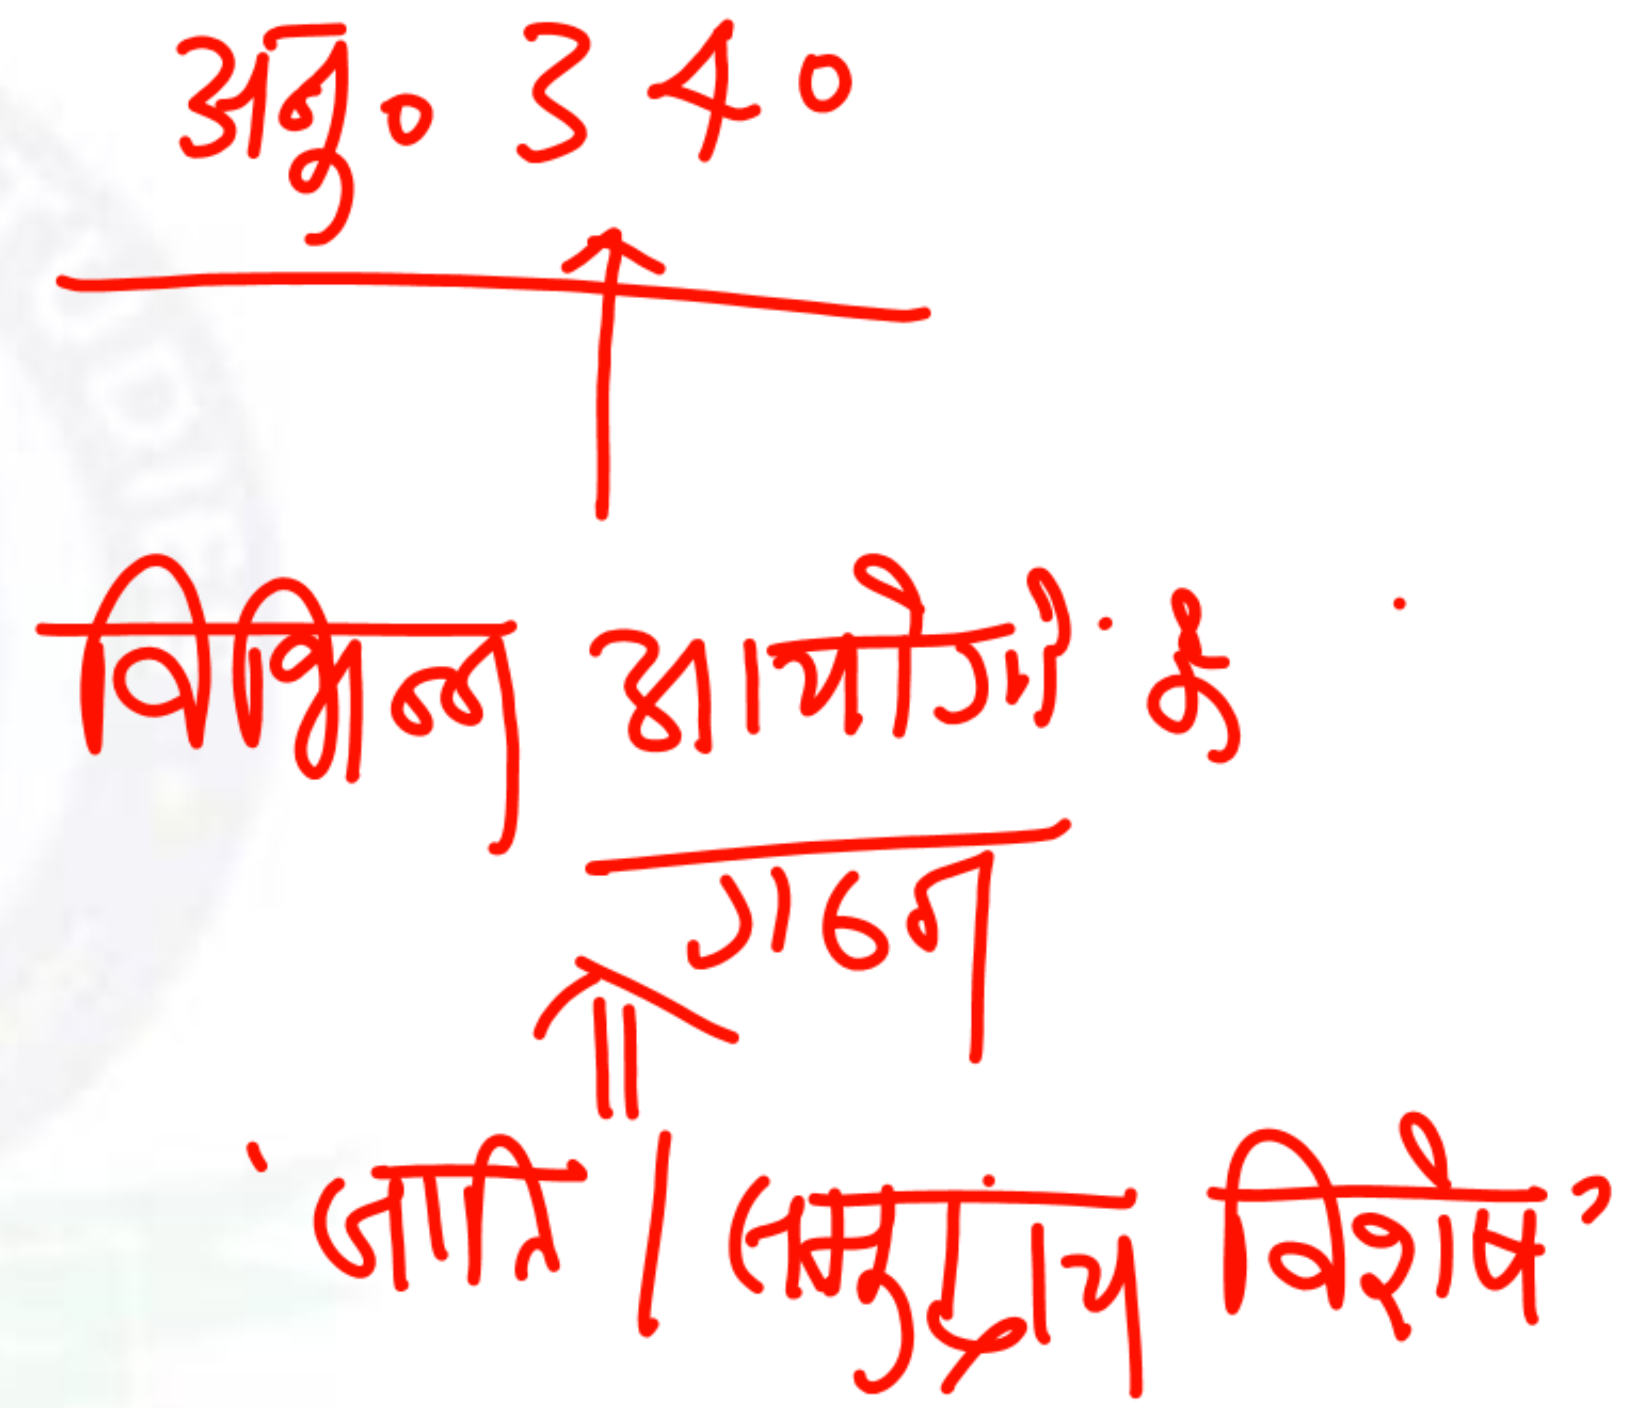 अनु० 340
विभिन्न आयोगों के
गठन
'जाति / समुदाय विशेष'